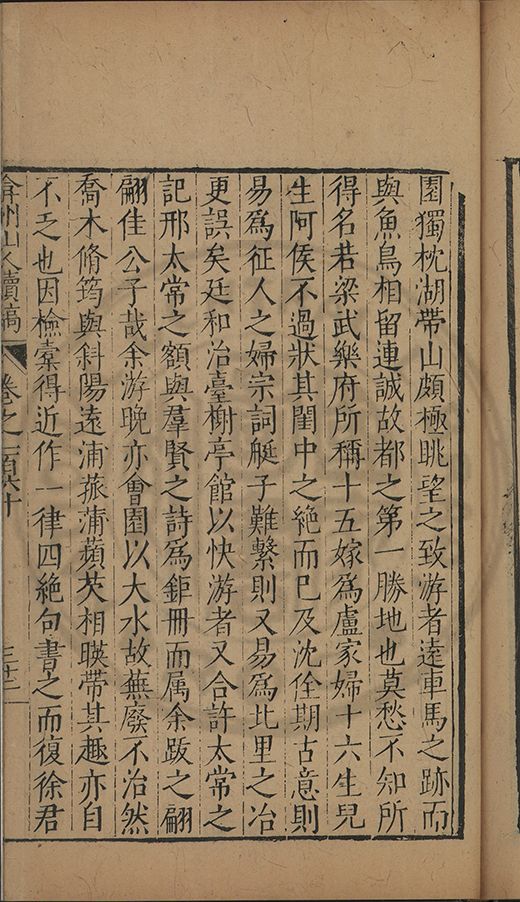 園獨枕湖帶山頗極眺望之致游者遠車馬之跡而
與魚鳥相留連誠故都之第一勝地也莫愁不知所
得名若梁武樂府所稱十五嫁爲盧家婦十六生兒
生阿侯不過狀其閨中之絶而已及沈佺期古意則
易爲征人之婦宗詞艇子難繫則又易爲北里之冶
更誤矣廷和治臺榭亭館以快游者又合許太常之
記邢太常之額與羣賢之詩爲鉅冊而属余跋之翩
翩佳公子哉余游晚亦會園以大水故蕪廢不治然
喬木脩筠與斜陽遠浦菰蒲蘋芡相暎帶其趣亦自
不乏也因檢橐得近作一律四絶句書之而復徐君
弇州山人續稿 卷之一百六十